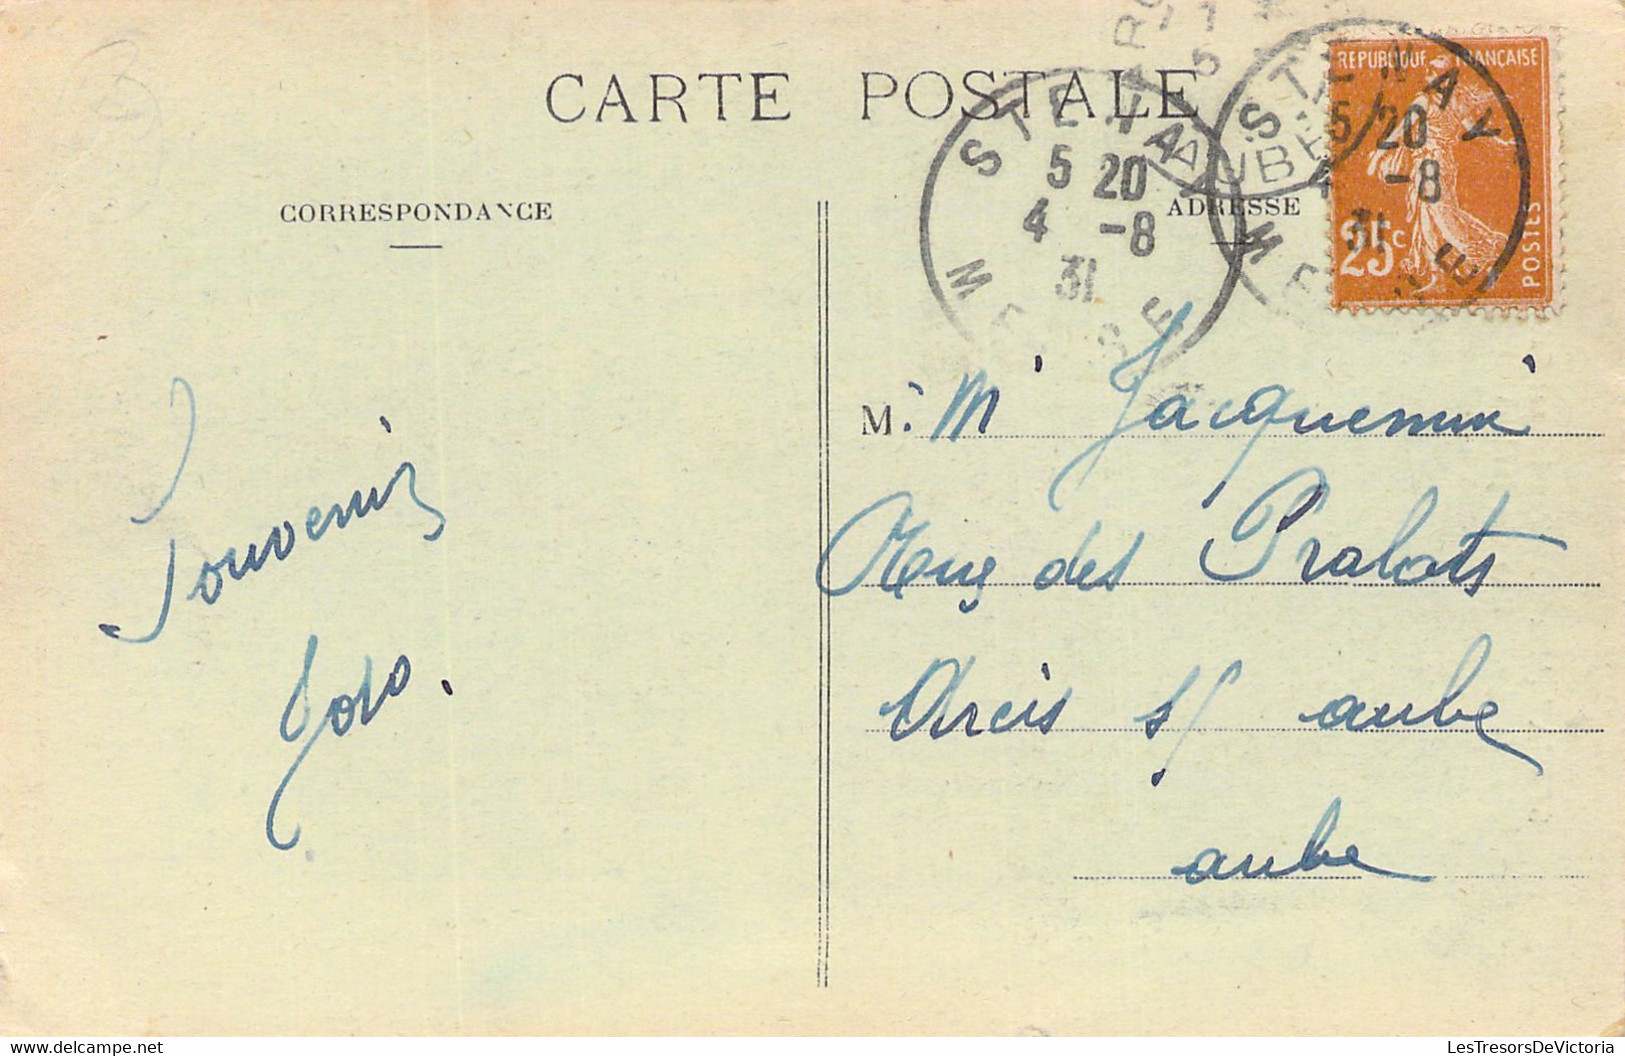 CARTE POSTALE
CORRESPONDANCE
ADRESSE
STENAY
5 20
4 -8
31
MEUSE
STENAY
5 20
4 -8
31
MEUSE
AUBE
REPUBLIQUE FRANÇAISE
25c
POSTES
M. Mr Jacquemin
Rue des Pralots
Arcis s/ aube
aube
Souvenir
Toto.
LesTresorsDeVictoria